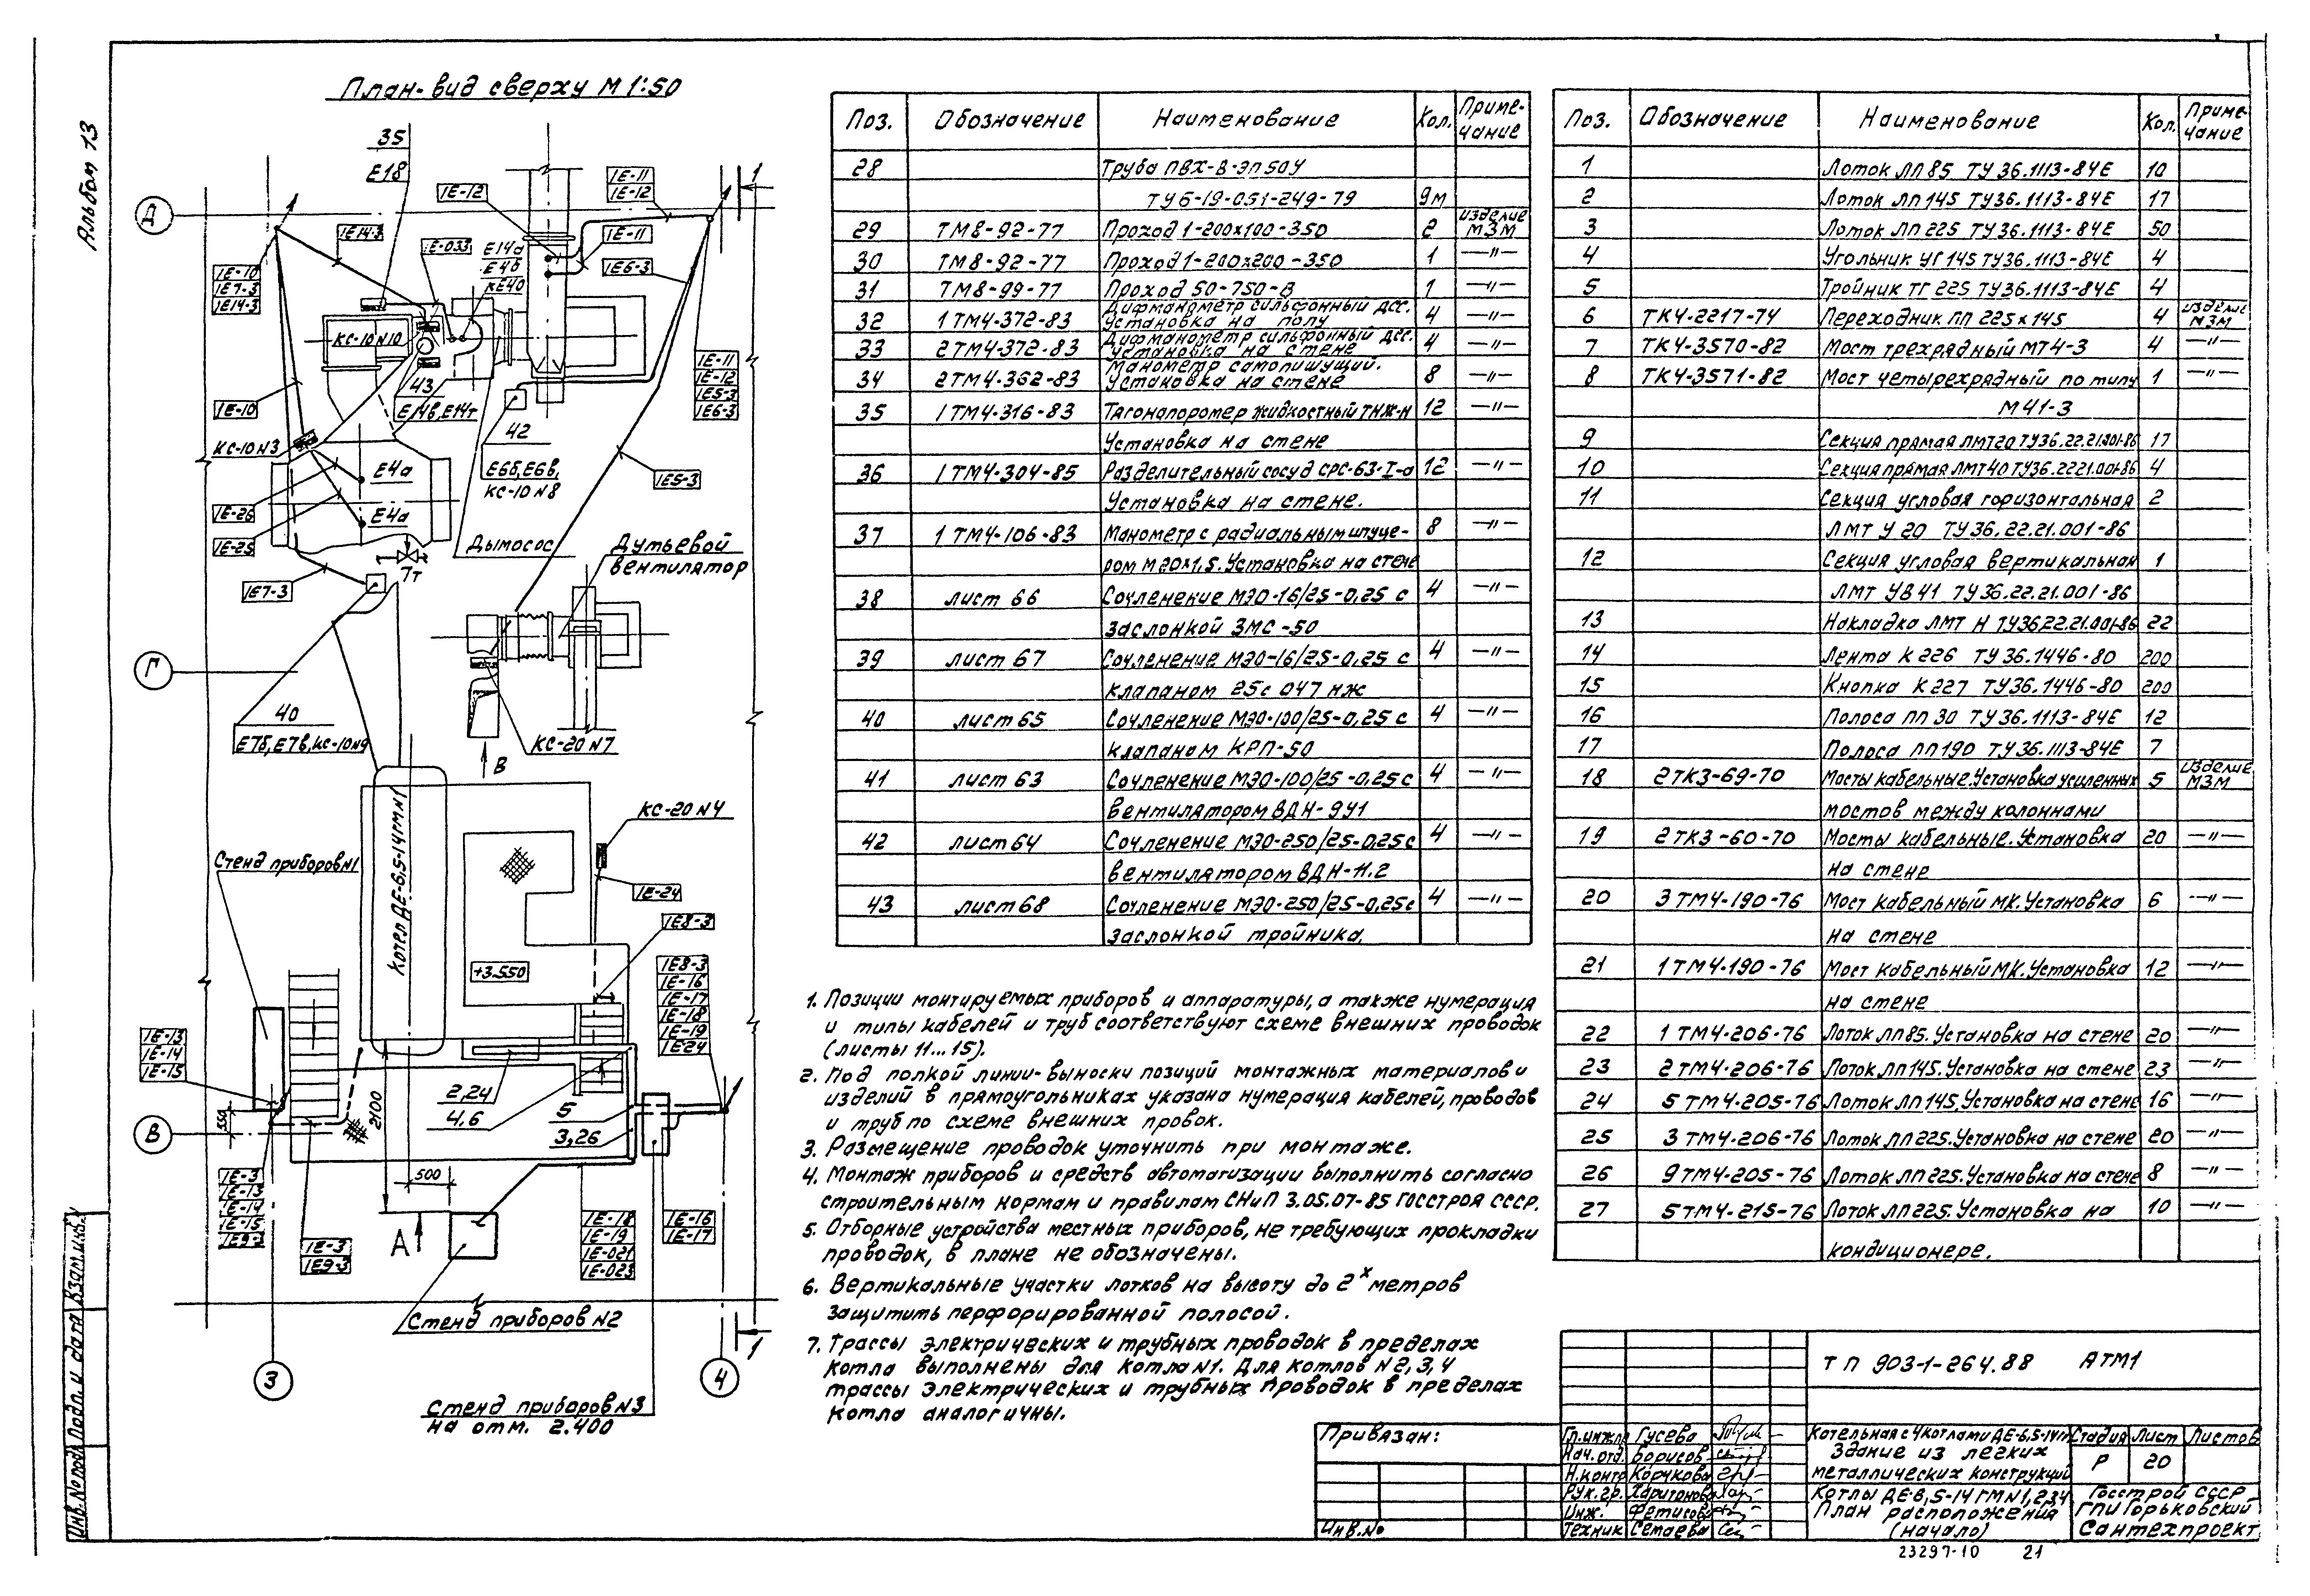 Альбом 13
План-вид сверху М 1:50
35
Е18
1Е-12
1Е-11
1Е-12
1
Д
1Е14-3
1Е-033
Е14а
Е4б
КЕ40
1Е-11
1Е6-3
1Е-10
1Е7-3
1Е14-3
КС-10 N10
43
Е14в, Е14г
42
Е6б, Е6в,
КС-10 N8
1Е-11
1Е-12
1Е5-3
1Е6-3
1Е-10
КС-10 N3
Е4а
Е4а
1Е-26
1Е-25
1Е5-3
Дымосос
Дутьевой
вентилятор
7т
1Е7-3
Г
40
Е7б, Е7в, КС-10 N9
КС-20 N7
В
КС-20 N4
Стенд приборов N1
Котел ДЕ-6,5-14ГМ N1
1Е-24
1Е8-3
+3.550
1Е8-3
1Е-16
1Е-17
1Е-18
1Е-19
1Е24
1Е-13
1Е-14
1Е-15
2,24
4,6
5
3,26
2100
550
В
500
А
1Е-3
1Е-13
1Е-14
1Е-15
1Е9-3
1Е-3
1Е9-3
1Е-18
1Е-19
1Е-021
1Е-023
1Е-16
1Е-17
Стенд приборов N2
1
3
4
Стенд приборов N3
на отм. 2.400
Поз. Обозначение Наименование Кол. Приме-
чание
28 Труба ПВХ-В-ЭП 50У
ТУ 6-19-051-249-79 9м
29 ТМ8-92-77 Проход 1-200х100-350 2 изделие МЗМ
30 ТМ8-92-77 Проход 1-200х200-350 1 —"—
31 ТМ8-99-77 Проход 50-750-В 1 —"—
32 1ТМ4-372-83 Дифманометр сильфонный дсс. Установка на полу 4 —"—
33 2ТМ4-372-83 Дифманометр сильфонный дсс. Установка на стене 4 —"—
34 2ТМ4-362-83 Манометр самопишущий. Установка на стене 8 —"—
35 1ТМ4-316-83 Тягонапоромер жидкостный ТНЖ-Н 12 —"—
Установка на стене
36 1ТМ4-304-85 Разделительный сосуд СРС-63-I-а 12 —"—
Установка на стене.
37 1ТМ4-106-83 Манометр с радиальным штуце- 8 —"—
ром М20х1,5. Установка на стене
38 лист 66 Сочленение МЭО-16/25-0,25 с 4 —"—
заслонкой ЗМС-50
39 лист 67 Сочленение МЭО-16/25-0,25 с 4 —"—
клапаном 25с 047 нж
40 лист 65 Сочленение МЭО-100/25-0,25 с 4 —"—
клапаном КРП-50
41 лист 63 Сочленение МЭО-100/25-0,25 с 4 —"—
вентилятором ВДН-9У1
42 лист 64 Сочленение МЭО-250/25-0,25 с 4 —"—
вентилятором ВДН-11.2
43 лист 68 Сочленение МЭО-250/25-0,25 с 4 —"—
заслонкой тройника.
1. Позиции монтируемых приборов и аппаратуры, а также нумерация
и типы кабелей и труб соответствуют схеме внешних проводок
(листы 11...15).
2. Под полкой линии-выноски позиций монтажных материалов и
изделий в прямоугольниках указана нумерация кабелей, проводов
и труб по схеме внешних провок.
3. Размещение проводок уточнить при монтаже.
4. Монтаж приборов и средств автоматизации выполнить согласно
строительным нормам и правилам СНиП 3.05.07-85 Госстроя СССР.
5. Отборные устройства местных приборов, не требующих прокладки
проводок, в плане не обозначены.
6. Вертикальные участки лотков на высоту до 2х метров
защитить перфорированной полосой.
7. Трассы электрических и трубных проводок в пределах
котла выполнены для котла N1. Для котлов N2,3,4
трассы электрических и трубных проводок в пределах
котла аналогичны.
Поз. Обозначение Наименование Кол. Приме-
чание
1 Лоток ЛП 85 ТУ 36.1113-84Е 10
2 Лоток ЛП 145 ТУ36.1113-84Е 17
3 Лоток ЛП 225 ТУ 36.1113-84Е 50
4 Угольник УГ 145 ТУ36.1113-84Е 4
5 Тройник ТГ 225 ТУ36.1113-84Е 4
6 ТК4-2217-74 Переходник ПП 225х145 4 изделие МЗМ
7 ТК4-3570-82 Мост трехрядный МТ4-3 4 —"—
8 ТК4-3571-82 Мост четырехрядный по типу 1 —"—
М41-3
9 Секция прямая ЛМТ20 ТУ36.22.21.001-86 17
10 Секция прямая ЛМТ40 ТУ36.22.21.001-86 4
11 Секция угловая горизонтальная 2
ЛМТ У 20 ТУ 36.22.21.001-86
12 Секция угловая вертикальная 1
ЛМТ УВ41 ТУ 36.22.21.001-86
13 Накладка ЛМТ Н ТУ36.22.21.001-86 22
14 Лента К 226 ТУ 36.1446-80 200
15 Кнопка К 227 ТУ 36.1446-80 200
16 Полоса ПП 30 ТУ 36.1113-84Е 12
17 Полоса ПП190 ТУ 36.1113-84Е 7
18 2ТК3-69-70 Мосты кабельные. Установка усиленных 5 изделие МЗМ
мостов между колоннами
19 2ТК3-60-70 Мосты кабельные. Установка 20 —"—
на стене
20 3ТМ4-190-76 Мост кабельный МК. Установка 6 —"—
на стене
21 1ТМ4-190-76 Мост кабельный МК. Установка 12 —"—
на стене
22 1ТМ4-206-76 Лоток ЛП85. Установка на стене 20 —"—
23 2ТМ4-206-76 Лоток ЛП145. Установка на стене 23 —"—
24 5ТМ4-205-76 Лоток ЛП145. Установка на стене 16 —"—
25 3ТМ4-206-76 Лоток ЛП225. Установка на стене 20 —"—
26 9ТМ4-205-76 Лоток ЛП225. Установка на стене 8 —"—
27 5ТМ4-215-76 Лоток ЛП225. Установка на 10 —"—
кондиционере.
ТП 903-1-264.88 АТМ1
Привязан:
Инв.No
Гл.инж.пр Гусева
Нач.отд. Борисов
Н.контр Корчкова
Рук.гр. Харитонова
Инж. Фетисова
Техник Сетаева
Котельная с 4 котлами ДЕ-6,5-14гм
Здание из легких
металлических конструкций
Стадия Лист Листов
Р 20
Котлы ДЕ-6,5-14ГМ N1,2,3,4
План расположения
(начало)
Госстрой СССР
ГПИ Горьковский
Сантехпроект
23297-10 21
Инв.Nоподл. Подп. и дата Взам.инв.